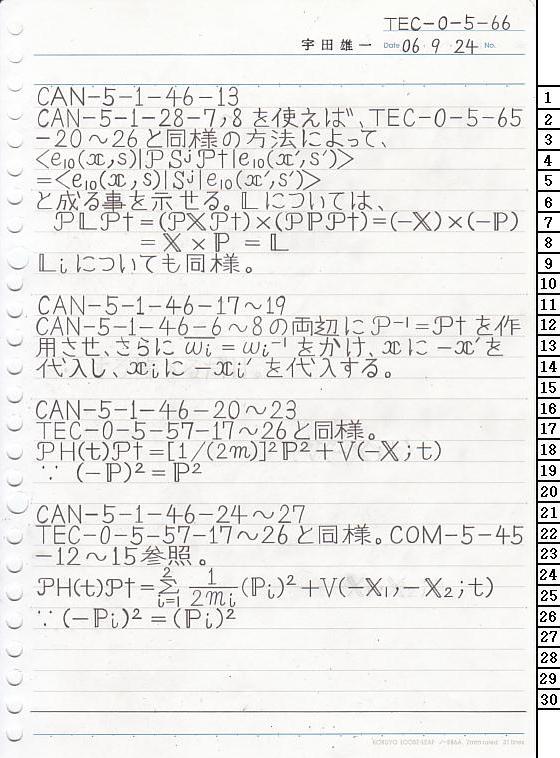 TEC-0-5-66
宇田雄一 Date 06・9・24 No.
CAN-5-1-46-13
CAN-5-1-28-7,8を使えば、TEC-0-5-65
-20～26と同様の方法によって、
<e₁₀(x,s)|𝒫Sʲ𝒫†|e₁₀(x′,s′)>
=<e₁₀(x,s)|Sʲ|e₁₀(x′,s′)>
と成る事を示せる。𝕃については、
𝒫𝕃𝒫†=(𝒫𝕏𝒫†)×(𝒫ℙ𝒫†)=(-𝕏)×(-ℙ)
=𝕏×ℙ=𝕃
𝕃iについても同様。
CAN-5-1-46-17～19
CAN-5-1-46-6～8の両辺に𝒫⁻¹=𝒫†を作
用させ、さらにω̅i=ωi⁻¹をかけ、xに-x′を
代入し、xiに-xi′を代入する。
CAN-5-1-46-20～23
TEC-0-5-57-17～26と同様。
𝒫H(t)𝒫†=[1/(2m)]²ℙ²+V(-𝕏;t)
∵ (-ℙ)²=ℙ²
CAN-5-1-46-24～27
TEC-0-5-57-17～26と同様。COM-5-45
-12～15参照。
𝒫H(t)𝒫†=∑²ᵢ₌₁ 1/2mi (ℙi)²+V(-𝕏₁,-𝕏₂;t)
∵(-ℙi)²=(ℙi)²
KOKUYO LOOSE-LEAF ノ-886A 7mm ruled 31 lines
1
2
3
4
5
6
7
8
9
10
11
12
13
14
15
16
17
18
19
20
21
22
23
24
25
26
27
28
29
30